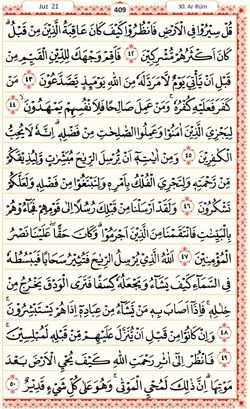 Juz 21 409 30. Ar-Rūm
قُلْ سِيرُوا فِى الْاَرْضِ فَانْظُرُوا كَيْفَ كَانَ عَاقِبَةُ الَّذِينَ مِنْ قَبْلُ ۗ
كَانَ اَكْثَرُهُمْ مُشْرِكِينَ ﴿٤٢﴾ فَاَقِمْ وَجْهَكَ لِلدِّينِ الْقَيِّمِ مِنْ
قَبْلِ اَنْ يَأْتِىَ يَوْمٌ لَا مَرَدَّ لَهُ مِنَ اللّٰهِ يَوْمَئِذٍ يَصَّدَّعُونَ ﴿٤٣﴾ مَنْ
كَفَرَ فَعَلَيْهِ كُفْرُهُ ۚ وَمَنْ عَمِلَ صَالِحًا فَلِاَنْفُسِهِمْ يَمْهَدُونَ ﴿٤٤﴾
لِيَجْزِىَ الَّذِينَ اٰمَنُوا وَعَمِلُوا الصَّالِحَاتِ مِنْ فَضْلِهِ ۗ اِنَّهُ لَا يُحِبُّ
الْكَافِرِينَ ﴿٤٥﴾ وَمِنْ اٰيَاتِهِ اَنْ يُرْسِلَ الرِّيَاحَ مُبَشِّرَاتٍ وَلِيُذِيقَكُمْ
مِنْ رَحْمَتِهِ وَلِتَجْرِىَ الْفُلْكُ بِاَمْرِهِ وَلِتَبْتَغُوا مِنْ فَضْلِهِ وَلَعَلَّكُمْ
تَشْكُرُونَ ﴿٤٦﴾ وَلَقَدْ اَرْسَلْنَا مِنْ قَبْلِكَ رُسُلًا اِلٰى قَوْمِهِمْ فَجَاءُوهُمْ
بِالْبَيِّنَاتِ فَانْتَقَمْنَا مِنَ الَّذِينَ اَجْرَمُوا ۗ وَكَانَ حَقًّا عَلَيْنَا نَصْرُ
الْمُؤْمِنِينَ ﴿٤٧﴾ اَللّٰهُ الَّذِى يُرْسِلُ الرِّيَاحَ فَتُثِيرُ سَحَابًا فَيَبْسُطُهُ
فِى السَّمَاءِ كَيْفَ يَشَاءُ وَيَجْعَلُهُ كِسَفًا فَتَرَى الْوَدْقَ يَخْرُجُ مِنْ
خِلَالِهِ ۚ فَاِذَا اَصَابَ بِهِ مَنْ يَشَاءُ مِنْ عِبَادِهِ اِذَا هُمْ يَسْتَبْشِرُونَ ﴿٤٨﴾
وَاِنْ كَانُوا مِنْ قَبْلِ اَنْ يُنَزَّلَ عَلَيْهِمْ مِنْ قَبْلِهِ لَمُبْلِسِينَ ﴿٤٩﴾
فَانْظُرْ اِلٰى اٰثَارِ رَحْمَتِ اللّٰهِ كَيْفَ يُحْيِى الْاَرْضَ بَعْدَ
مَوْتِهَا ۗ اِنَّ ذٰلِكَ لَمُحْيِى الْمَوْتٰى ۚ وَهُوَ عَلٰى كُلِّ شَىْءٍ قَدِيرٌ ﴿٥٠﴾